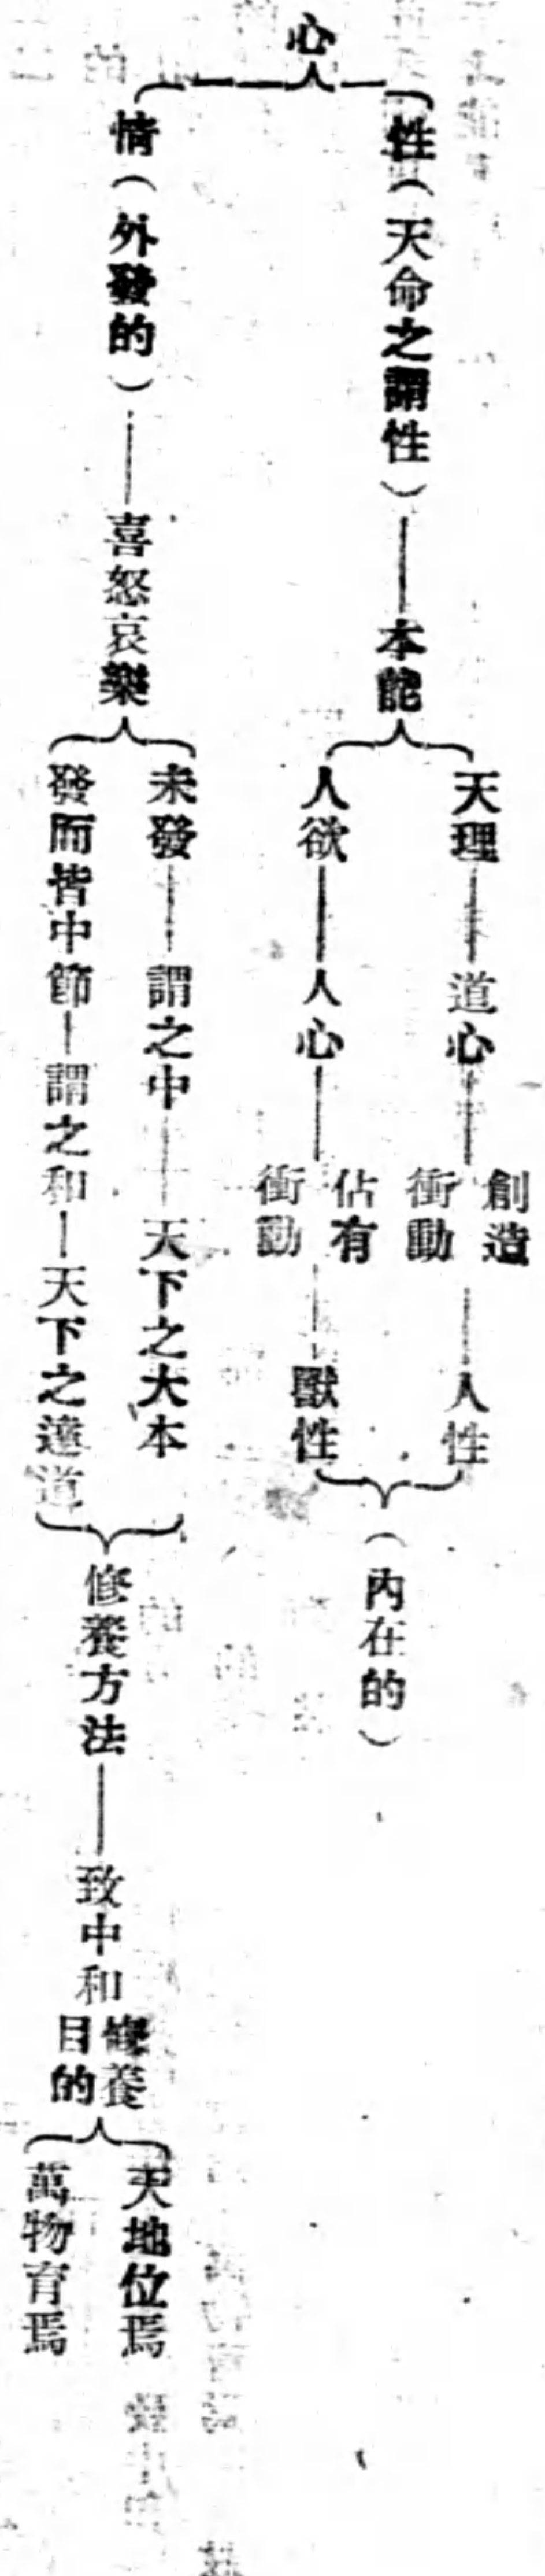 心
性（天命之謂性）——本能
天理——道心——創造衝動——人性
人欲——人心——佔有衝動——獸性
（內在的）
情（外發的）——喜怒哀樂
未發——謂之中——天下之大本
發而皆中節—謂之和—天下之達道
修養方法——致中和
修養目的
天地位焉
萬物育焉